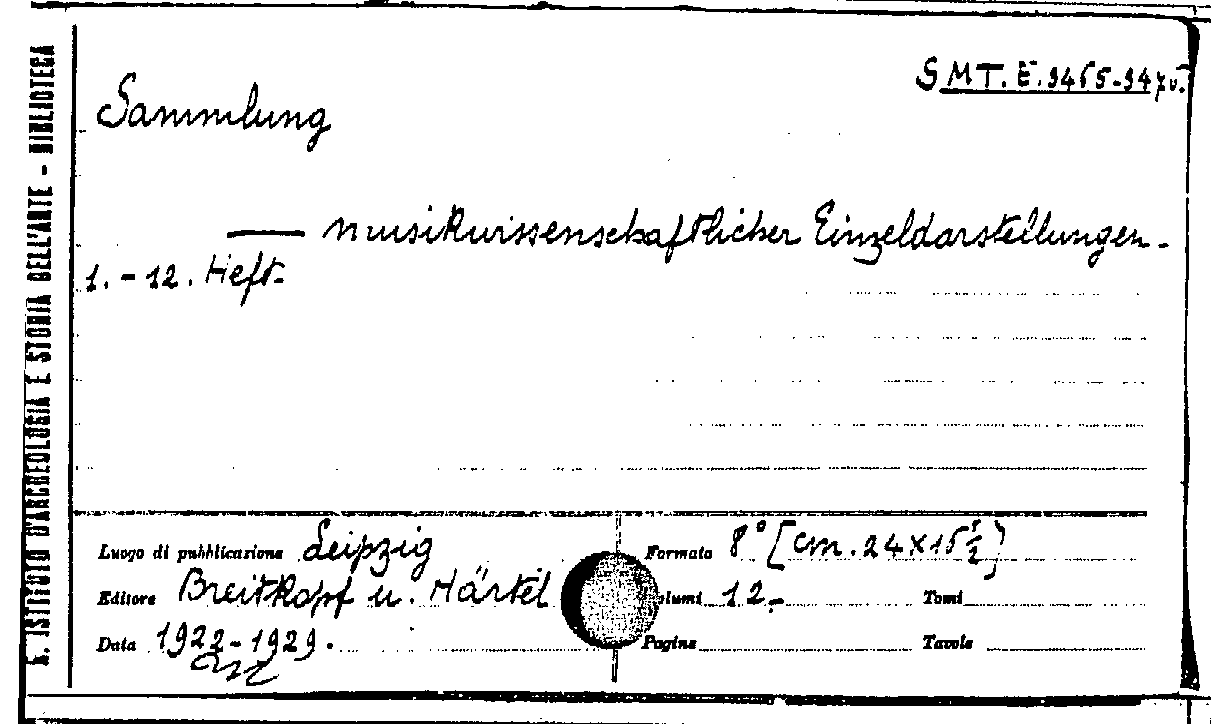 R. ISTITUTO D'ARCHEOLOGIA E STORIA DELL'ARTE - BIBLIOTECA
SMT. E. 3465-347
Sammlung
— musikwissenschaftlicher Einzeldarstellungen.
1. - 12. Heft.
Luogo di pubblicazione Leipzig Formato 8° [cm. 24x15 ½]
Editore Breitkopf u. Härtel Volumi 12.- Tomi
Data 1922-1929. Pagine Tavole